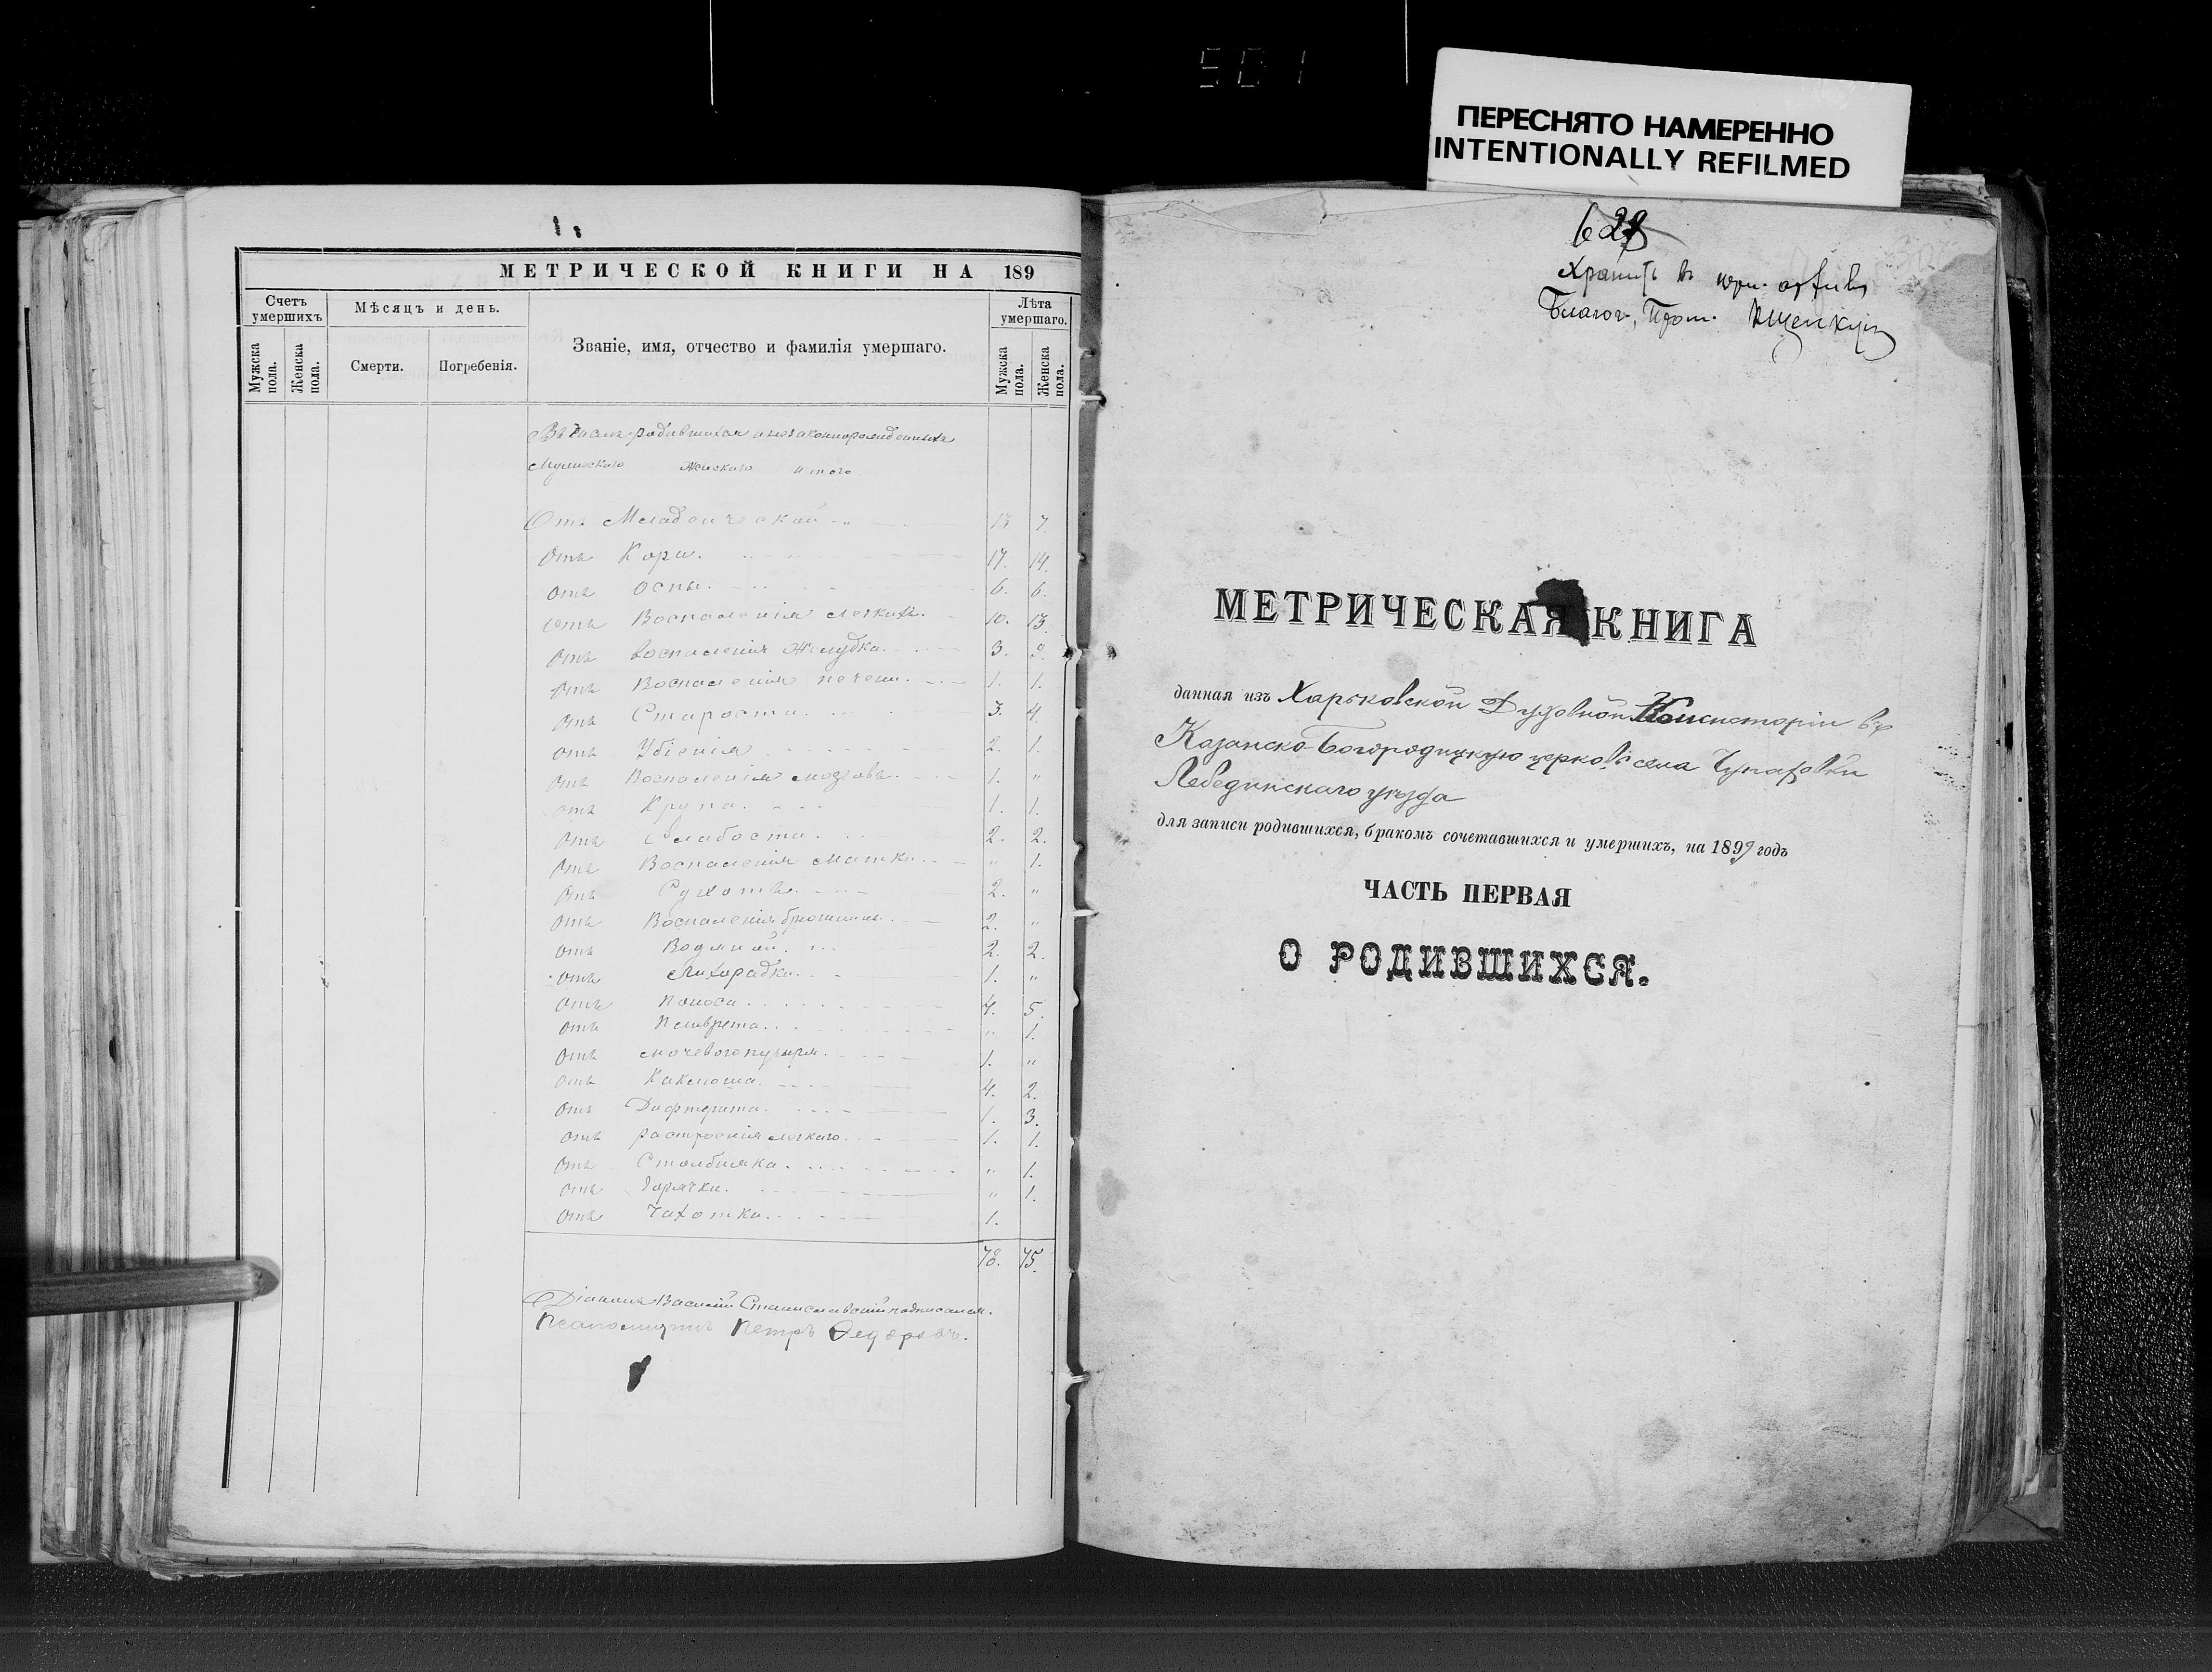 501
ПЕРЕСНЯТО НАМЕРЕННО
INTENTIONALLY REFILMED
МЕТРИЧЕСКОЙ КНИГИ НА 189
Счетъ умершихъ
Мѣсяцъ и день.
Званіе, имя, отчество и фамилія умершаго.
Лѣта умершаго.
Мужска пола.
Женска пола.
Смерти.
Погребенія.
Мужска пола.
Женска пола.
Въ числѣ родившихся незаконнорожденныхъ
Мужскаго Женскаго итого
Отъ Младенческой 13 7.
Отъ Кори. 17. 14.
Отъ Оспы. 6. 6.
Отъ Воспаленія легкихъ. 10. 13.
Отъ воспаленія Желудка. 3. 9.
Отъ Воспаленія печени. 1. 1.
Отъ Старости. 3. 4.
Отъ Убіенія 2. 1.
Отъ Воспаленія мозговъ. 1. "
Отъ Крупа. 1. 1.
Отъ Слабости. 2. 2.
Отъ Воспаленія Матки. " 1.
Отъ Сухоты. 2. "
Отъ Воспаленія брюшины. 2. "
Отъ Водяной. 2. 2.
Отъ Лихорадки. 1. "
Отъ Поноса. 4. 5.
Отъ Плеврета. " 1.
Отъ мочевого пузыря. 1. "
Отъ Коклюша. 4. 2.
Отъ Дифтерита. 1. 3.
Отъ растроенія легкаго. 1. 1.
Отъ Столбняка. " 1.
Отъ Горячки. " 1.
Отъ Чахотки. 1.
78. 75.
Діаконъ Василій Станиславскій подписалъ.
Псаломщикъ Петръ Ѳедоровъ.
Хранить въ церк. архивѣ
Благоч. Прот.
МЕТРИЧЕСКАЯ КНИГА
данная изъ Харьковской Духовной Консисторіи въ
Казанско-Богородицкую церковь села Чупаховки
Лебединскаго уѣзда
для записи родившихся, бракомъ сочетавшихся и умершихъ, на 1899 годъ
ЧАСТЬ ПЕРВАЯ
О РОДИВШИХСЯ.